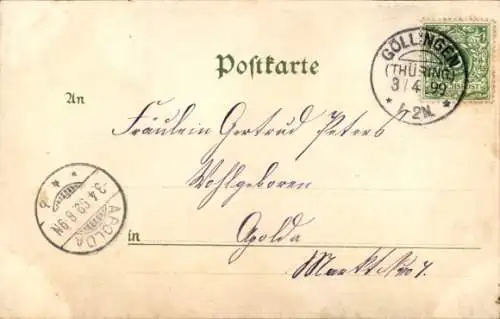 Postkarte
GÖLLINGEN
(THÜRING)
3/4 99
1-2N.
An
Fräulein Gertrud Peters
Wohlgeboren
in Apolda
Markt No 7.
3.4.99.8-9N
APOLDA